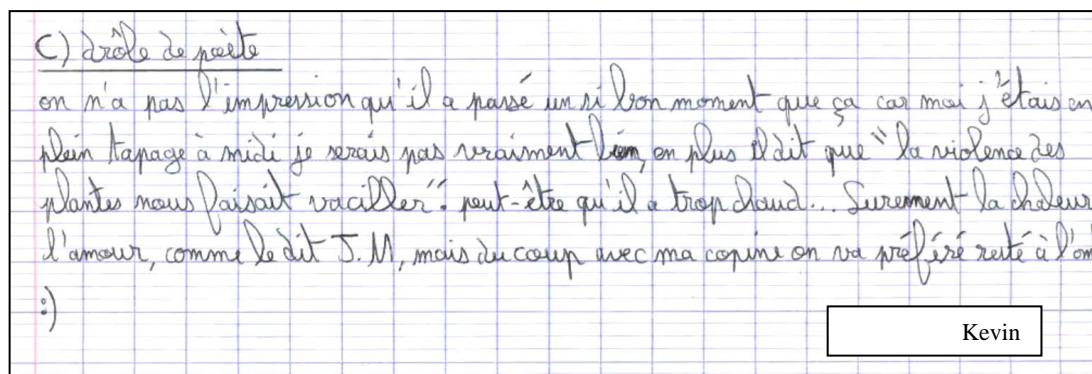 C) drôle de poète
on n'a pas l'impression qu'il a passé un si bon moment que ça car moi j'étais en
plein tapage à midi je serais pas vraiment bien, en plus il dit que "la violence des
plantes nous faisait vaciller". peut-être qu'il a trop chaud... Surement la chaleur
l'amour, comme le dit J.M, mais du coup avec ma copine on va préféré resté à l'om
:)
Kevin